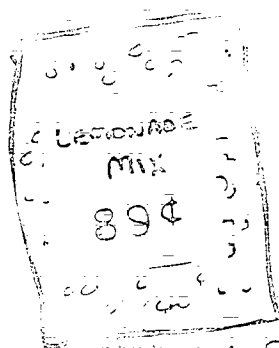 LEMONADE
MIX
89¢